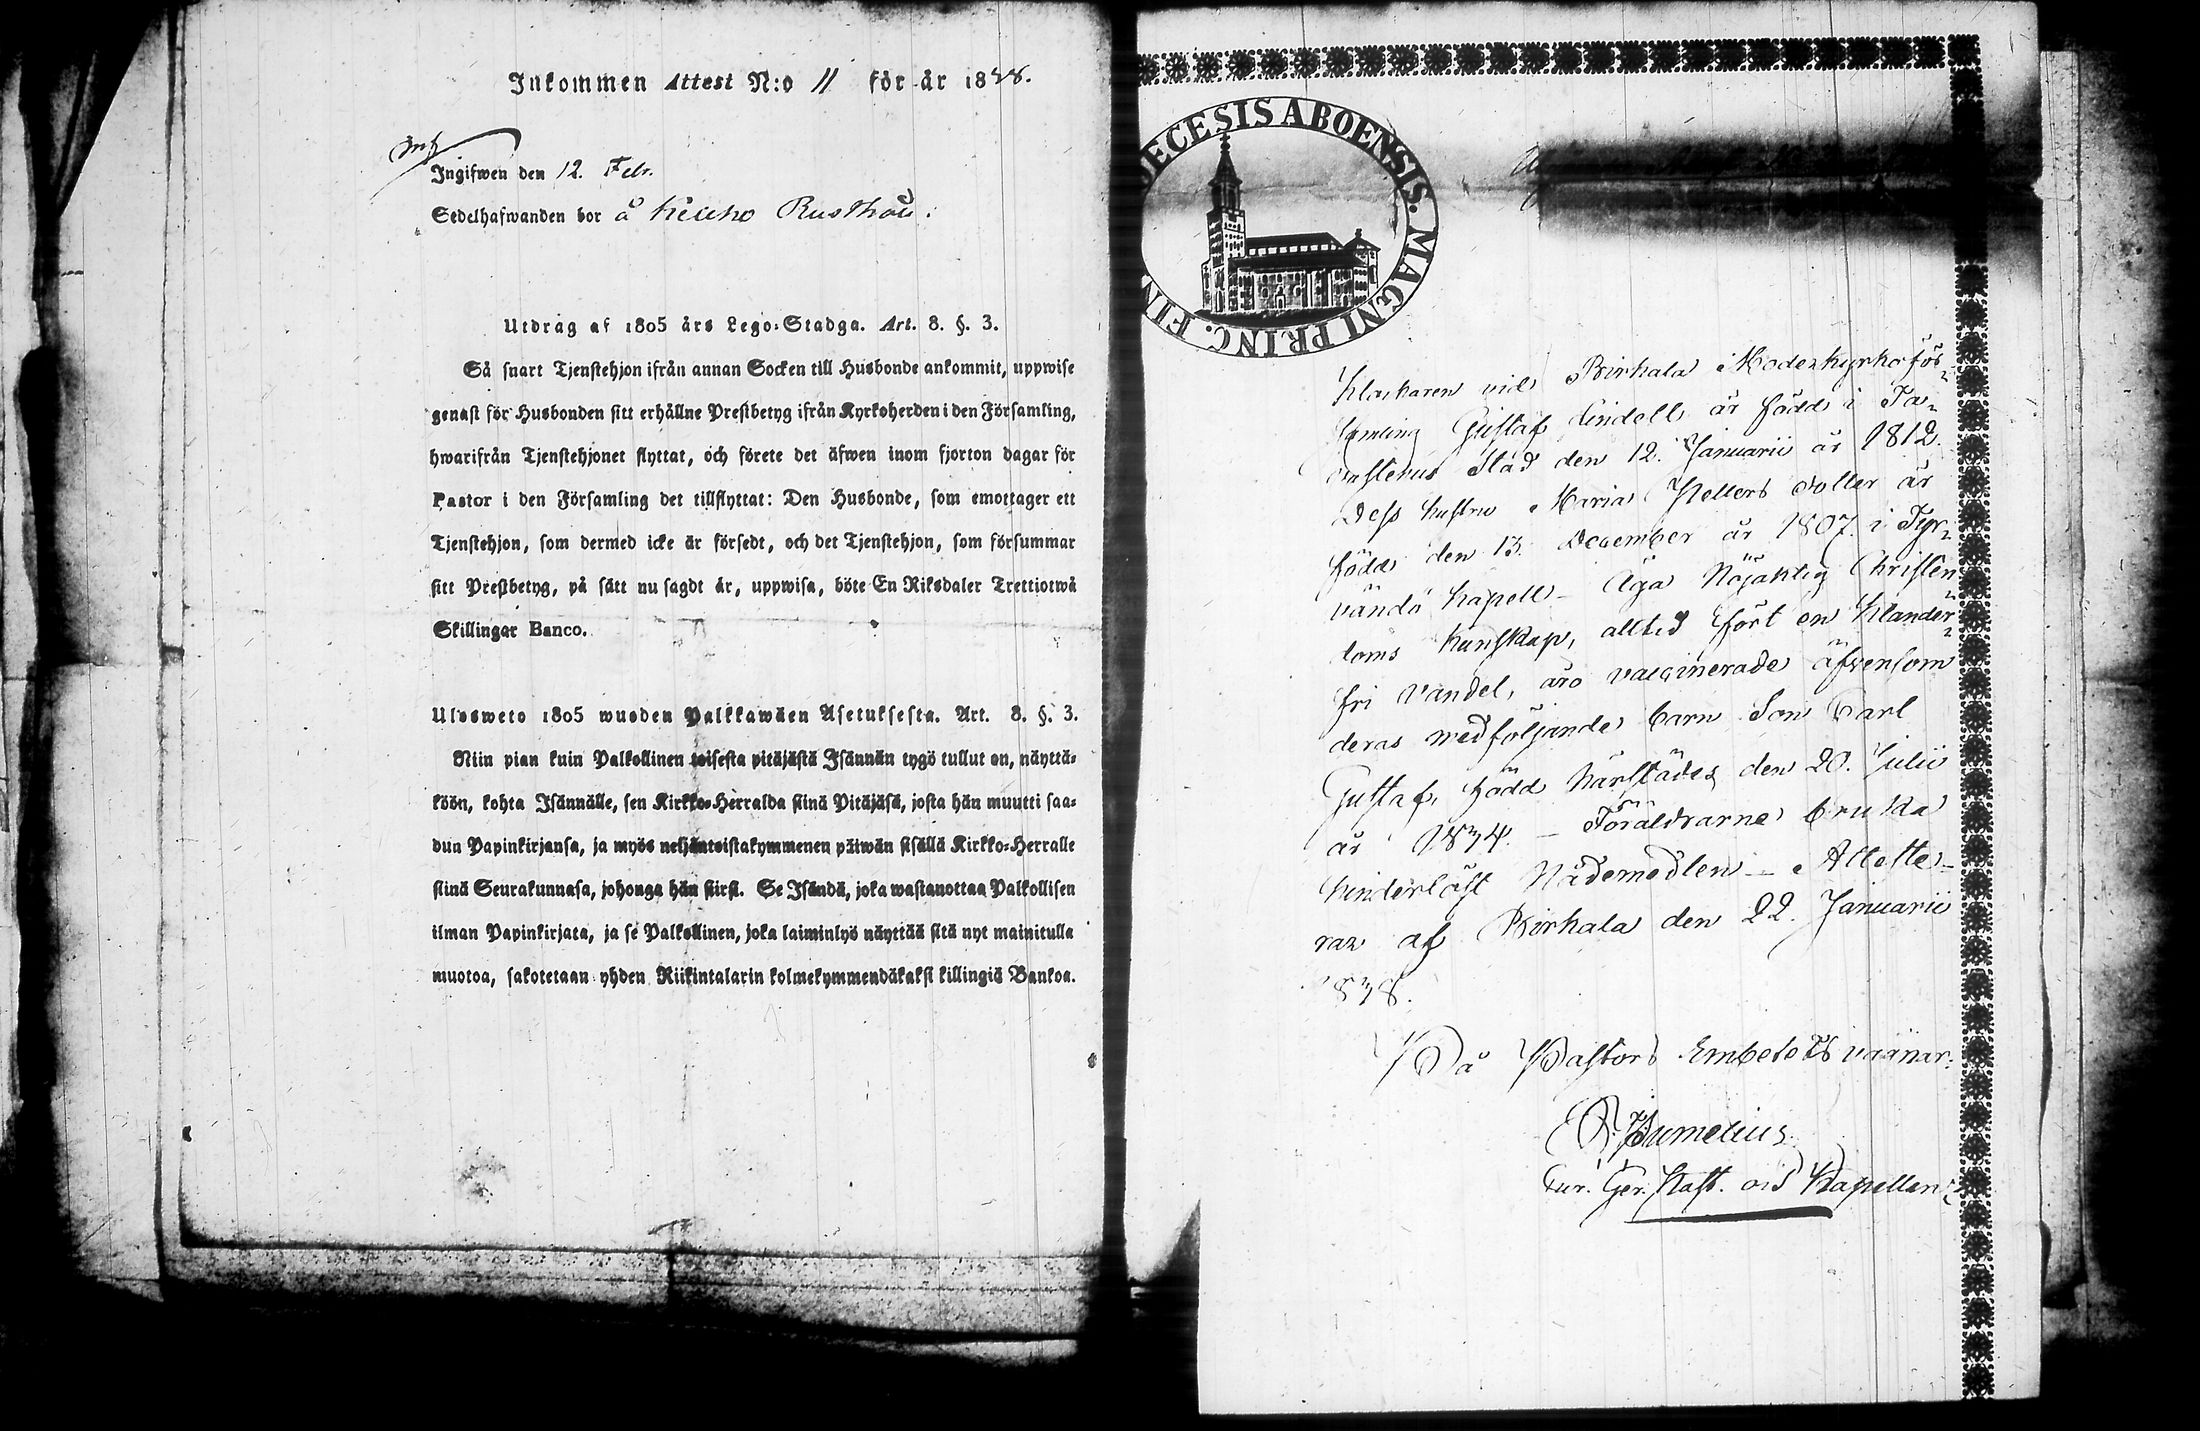 Inkommen Attest N:o 11 för år 1838.
Ingifwen den 12. Febr.
Sedelhafwanden bor å Rusthåll.
Utdrag af 1805 års Lego-Stadga. Art. 8. §. 3.
Så snart Tjenstehjon ifrån annan Socken till Husbonde ankommit, uppwise
genast för Husbonden sitt erhållne Prestbetyg ifrån Kyrkoherden i den Församling,
hwarifrån Tjenstehjonet flyttat, och förete det äfwen inom fjorton dagar för
Pastor i den Församling det tillflyttat: Den Husbonde, som emottager ett
Tjenstehjon, som dermed icke är försedt, och det Tjenstehjon, som försummar
sitt Prestbetyg, på sätt nu sagdt är, uppwisa, böte En Riksdaler Trettiotwå
Skillingar Banco.
Ulosweto 1805 wuoden Palkkawäen Asetuksesta. Art. 8. §. 3.
Niin pian kuin Palkollinen toisesta pitäjästä Isännän tygö tullut on, näyttä-
köön, kohta Isännälle, sen Kirkko-Herralda siinä Pitäjäsä, josta hän muutti saa-
dun Papinkirjansa, ja myös neljäntoistakymmenen päiwän sisällä Kirkko-Herralle
siinä Seurakunnasa, johonga hän siirsi. Se Isändä, joka wastanottaa Palkollisen
ilman Papinkirjata, ja se Palkollinen, joka laiminlyö näyttää sitä nyt mainitulla
muotoa, sakotetaan yhden Riikintalarin kolmekymmendäkaksi killingiä Bankoa.
DIOECESIS ABOENSIS. MAGNI PRINC. FIN
Klockaren vid Birkala Moderkyrko för-
samling Gustaf Lindell är född i Ta-
vastehus Stad den 12. Januarii år 1812.
Dess hustru Maria Kellers dotter är
född den 13. December år 1807. i Tyr-
vändö Kapell - Äga Nöjaktig Christen-
doms kunskap, alltid fört en klander-
fri vandel, äro vaccinerade äfvensom
deras medföljande barn Son Carl
Gustaf, född härstädes den 20. Julii
år 1834. - Föräldrarne bruka
hinderlöst Nådemedlen - Atteste-
rar af Birkala den 22. Januarii
1838.
På Pastors Embetets vägnar:
Humelius
Cur. Ger. Past. vid Kapellen